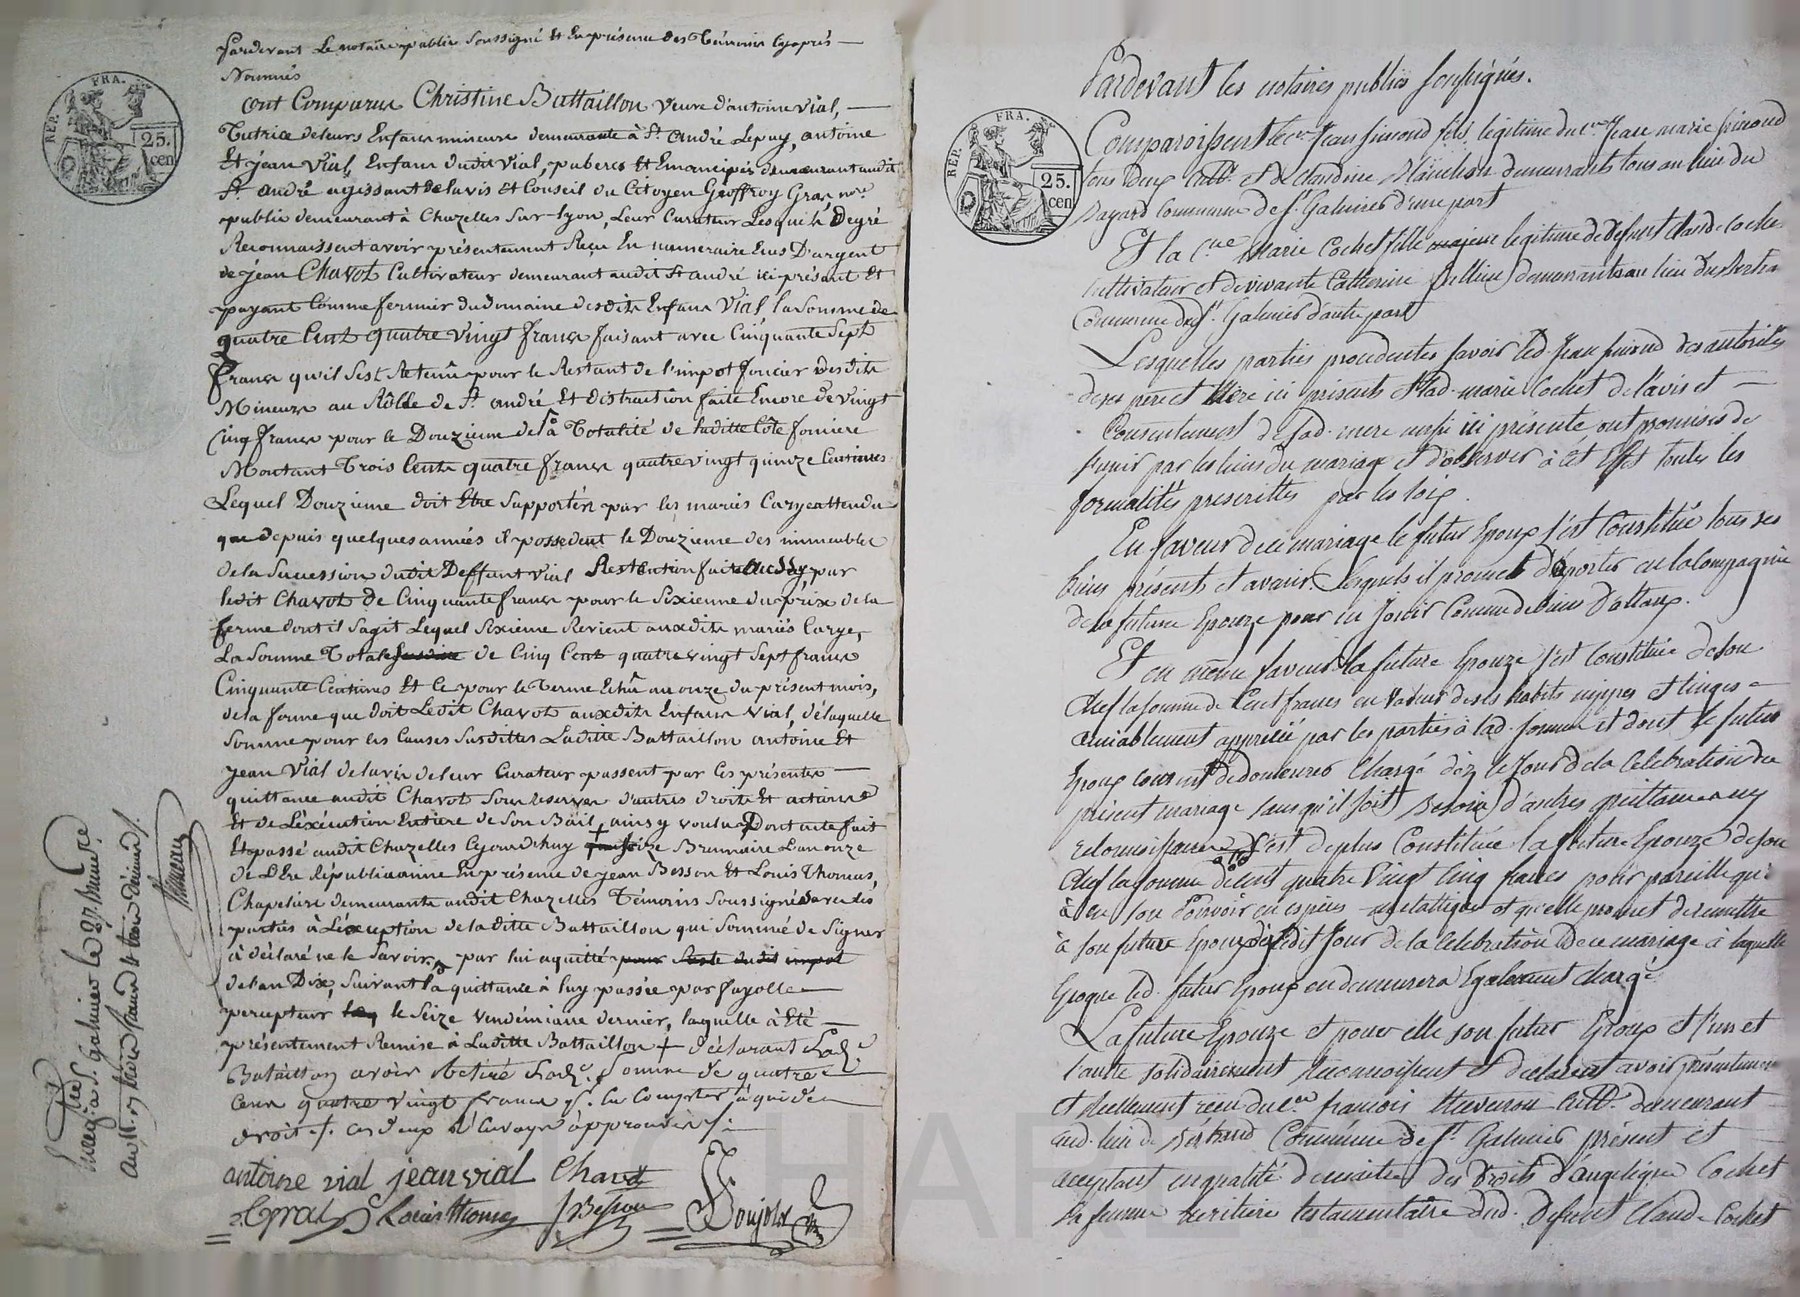 Pardevant Le notaire public Soussigné Et En présence des Témoins Cyaprès —
Nommés
ont Comparus Christine Battaillon veuve d'antoine vial, —
Tutrice de leurs Enfans mineurs demeurante à St André Lepuy, antoine
Et jean Vial, Enfans dudit Vial, puberes Et Emancipés demeurant audit
St André agissant de lavis Et Conseil du Citoyen Geoffroy Gras nore
public demeurant à Chazelles Sur-lyon, Leur Curateur Lesquels Degré
Reconnaissent avoir présentement Reçu En numeraire Ecus D'argent
de jean Chavot Cultivateur demeurant audit St andré ici présent Et
payant Comme fermier du domaine desdits Enfans Vial, la Somme de
quatre Cent quatre vingt francs faisant avec Cinquante Sept
francs qu'il s'est Retenû pour le Restant de l'impot foncier desdits
Mineurs au Rôlle de St andré Et distraction faite Encore de vingt
Cinq francs pour le Douzieme de la Totalité de laditte Côte fonciere
Montant Trois Cents quatre francs quatre vingt quinze Centimes
Lequel Douzieme doit Etre Supporté par les mariés Carye attendu
que depuis quelques années ils possedent le Douzieme des immeubles
de la Succession dudit Deffunt vial Restriction faite aussy, par
ledit Chavot de Cinquante francs pour le Sixieme du prix de la
ferme dont il Sagit Lequel Sixieme Revient auxdits mariés Carye,
La Somme Totale de Cinq Cent quatre vingt Sept francs
Cinquante Centimes Et Ce pour le Terme Echû au onze du présent mois,
de la ferme que doit Ledit Chavot auxdits Enfans Vial, de laquelle
Somme pour les Causes Susdittes Laditte Battaillon antoine Et
jean Vial de lavis de leur Curateur passent par Ces présentes —
quittance audit Chavot Sous reserves d'autres droits Et actions
Et de L'exécution Entiere de Son Bail, ainsy voulu Dont acte fait
Et passé audit Chazelles Cejourdhuy Seize Brumaire L'an onze
de L'Ere Républicaine En présence de jean Besson Et Louis Thomas,
Chapeliers demeurants audit Chazelles Témoins Soussignés avec les
parties à L'exception de la ditte Battaillon qui Sommée de Signer
à déclaré ne le Savoir, par lui aquitté pour Reste dudit impot
de lan Dix, Suivant la quittance à luy passée par fayolle —
percepteur le Seize Vendémiaire dernier, laquelle à Eté —
présentement Remise à Laditte Battaillon + déclarant Lade
Bataillon avoir Retiré Lade Somme de quatre
Cent quatre vingt francs pr. En Compter à qui de
droit ./. Ces deux Renvoys approuvés ./.
antoine vial jean vial Chavot
Gras Louis Thomas J Besson
Enregtré à St Galmier le 27 Brumaire
an 11. Reçu trois francs & trois décimes /.
REP. FRA.
25.
cen
Pardevant les notaires publics soussignés.
Comparoissent le cen Jean simond fils légitime du cen Jean marie simond
tous deux Cultt. et de claudine demeurants tous au lieu du
Bayard Commune de St. Galmier d'une part
Et la Cne Marie Cochet fille legitime de Defunt Claude Cochet
cultivateur et de vivante Catherine demeurants au lieu
Commune dud. St. Galmier d'autre part
Lesquelles parties procedentes savoir led. Jean simond des autorités
de ses pere et Mere ici présents et lad. marie Cochet de l'avis et —
Consentement de sad. mere aussi ici présente ont promises de
s'unir par les liens du mariage et d'observer à cet Effet toutes les
formalités prescrittes par les loix.
En faveur de ce mariage le futur Epoux s'est Constitué tous ses
biens présents et avenir. lesquels il promet d'apporter en la Compagnie
de la future Epouze pour en Jouir Comme de biens D'ottaux.
Et en même faveur la future Epouze s'est Constituée de son
Chef la somme de Cent francs en valeur de ses habits nippes et linges —
amiablement apprécié par les parties à lad. somme et dont le futur
Epoux consent de demeurer Chargé dèz le Jour de la Celebration du
présent mariage sans qu'il soit Besoin d'autres quittances ny
reconnoissance. S'est de plus Constituée la future Epouze de son
Chef la somme de cent quatre Vingt Cinq francs pour pareille qu'
à en son Pouvoir en espèces metalliques et qu'elle promet de remettre
à son futur Epoux ledit Jour de la Celebration de ce mariage à laquelle
Epoque led. futur Epoux en demeurera Egalement chargé
La future Epouze et pour elle son futur Epoux et l'un et
l'autre solidairement Reconnoissent et declarent avoir présentement
et réellement reçu du cen françois Thevenon Cultt. demeurant
aud. lieu de Commune de St. Galmier présent et —
acceptant en qualité de maitre des droits d'angelique Cochet
sa femme heritiere testamentaire dud. defunt Claude Cochet
REP. FRA.
25.
cen